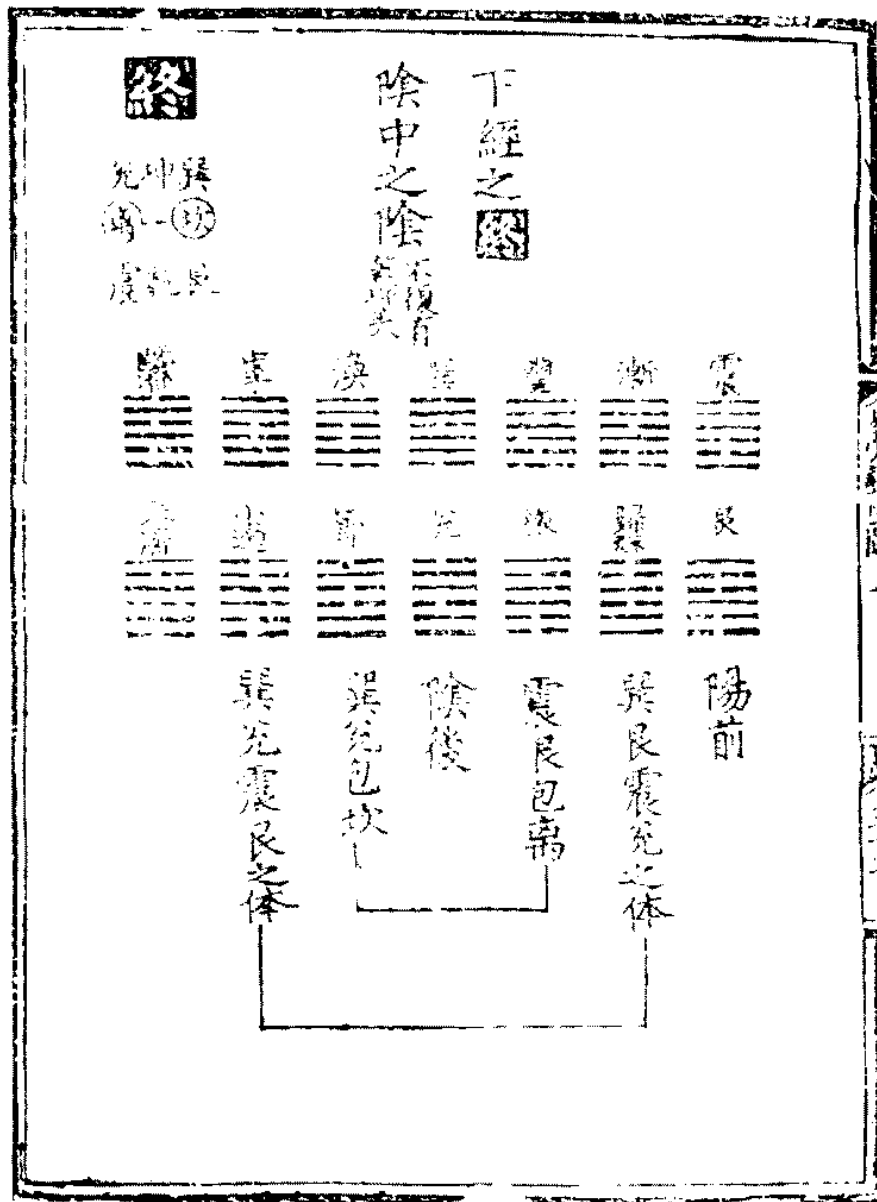 下經之終
陰中之陰
不復有
終
巽坤兌
坎一離
艮乾震
震 漸 豐 巽 渙 中孚 既濟
艮 歸妹 旅 兌 節 小過 未濟
陽前
巽艮震兌之体
震艮包离
陰後
巽兌包坎
巽兌震艮之体